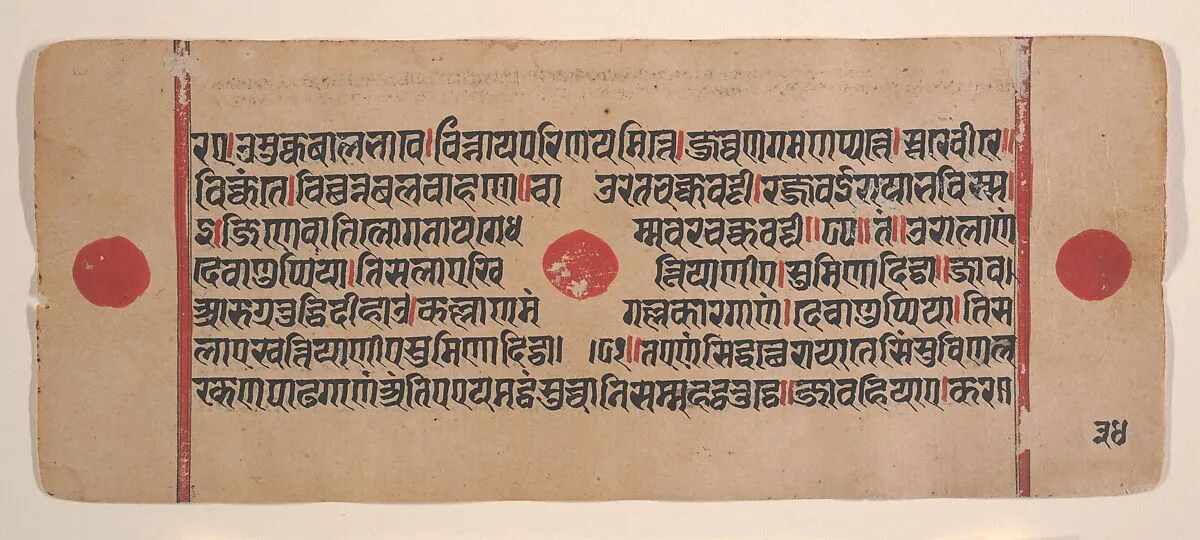 रए।उमुक्कबालभावे।विन्नायपरिणयमित्ते।जुव्वणगमणुप्पत्ते।सूरेवीरे॥
विक्कंते।विच्छिन्नबलवाहणे॥चा उरंतचक्कवट्टी।रज्जवईरायाभविस्स।
इ।जिणेवातिलोगनायगेध म्मवरचक्कवट्टी॥७८॥तं॥उरालाणं
देवाणुप्पिया।तिसलाएखत्ति त्तियाणीए।सुमिणादिट्ठा॥जाव।
आरुग्गतुट्ठिदीहाउ।कल्लाणमं गल्लकारगाणं।देवाणुप्पिया।तिस
लाएखत्तियाणीएसुमिणादिट्ठा। ।७९॥तएणंसिद्धत्थेरायातेसिंसुविणल
रकणपाढगाणंअंतिएएयमट्ठंसुच्चानिसम्महट्ठतुट्ठे॥जावहियए।करय
३४